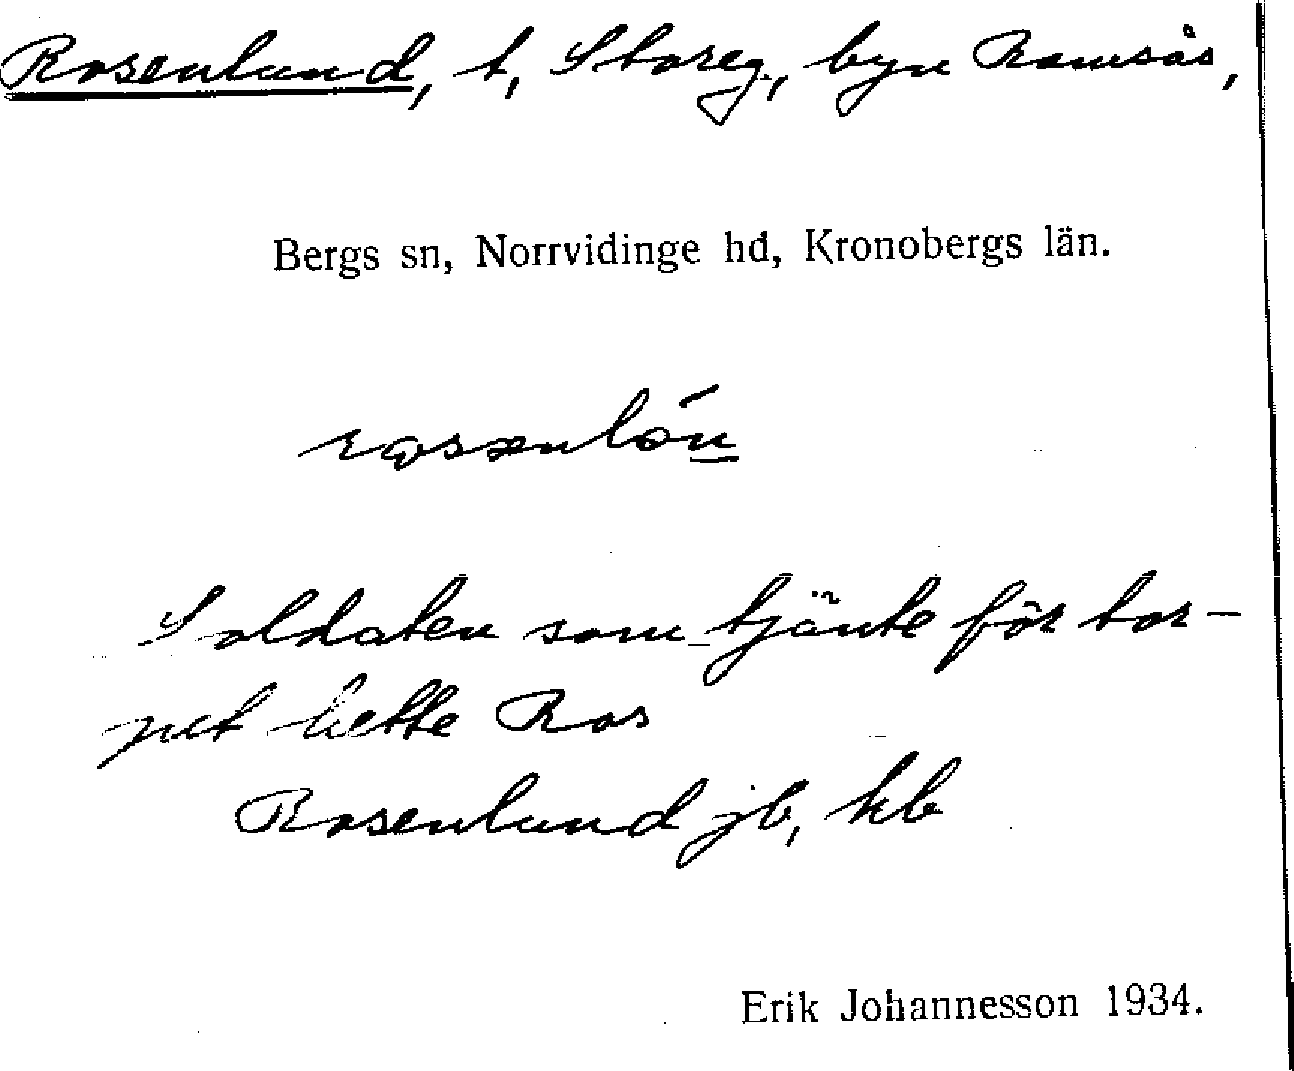 Rosenlund, t, Storeg., byn Ramsås,
Bergs sn, Norrvidinge hd, Kronobergs län.
Soldaten som tjänte för tor-
pet hette Ros
Rosenlund jb, kb
Erik Johannesson 1934.